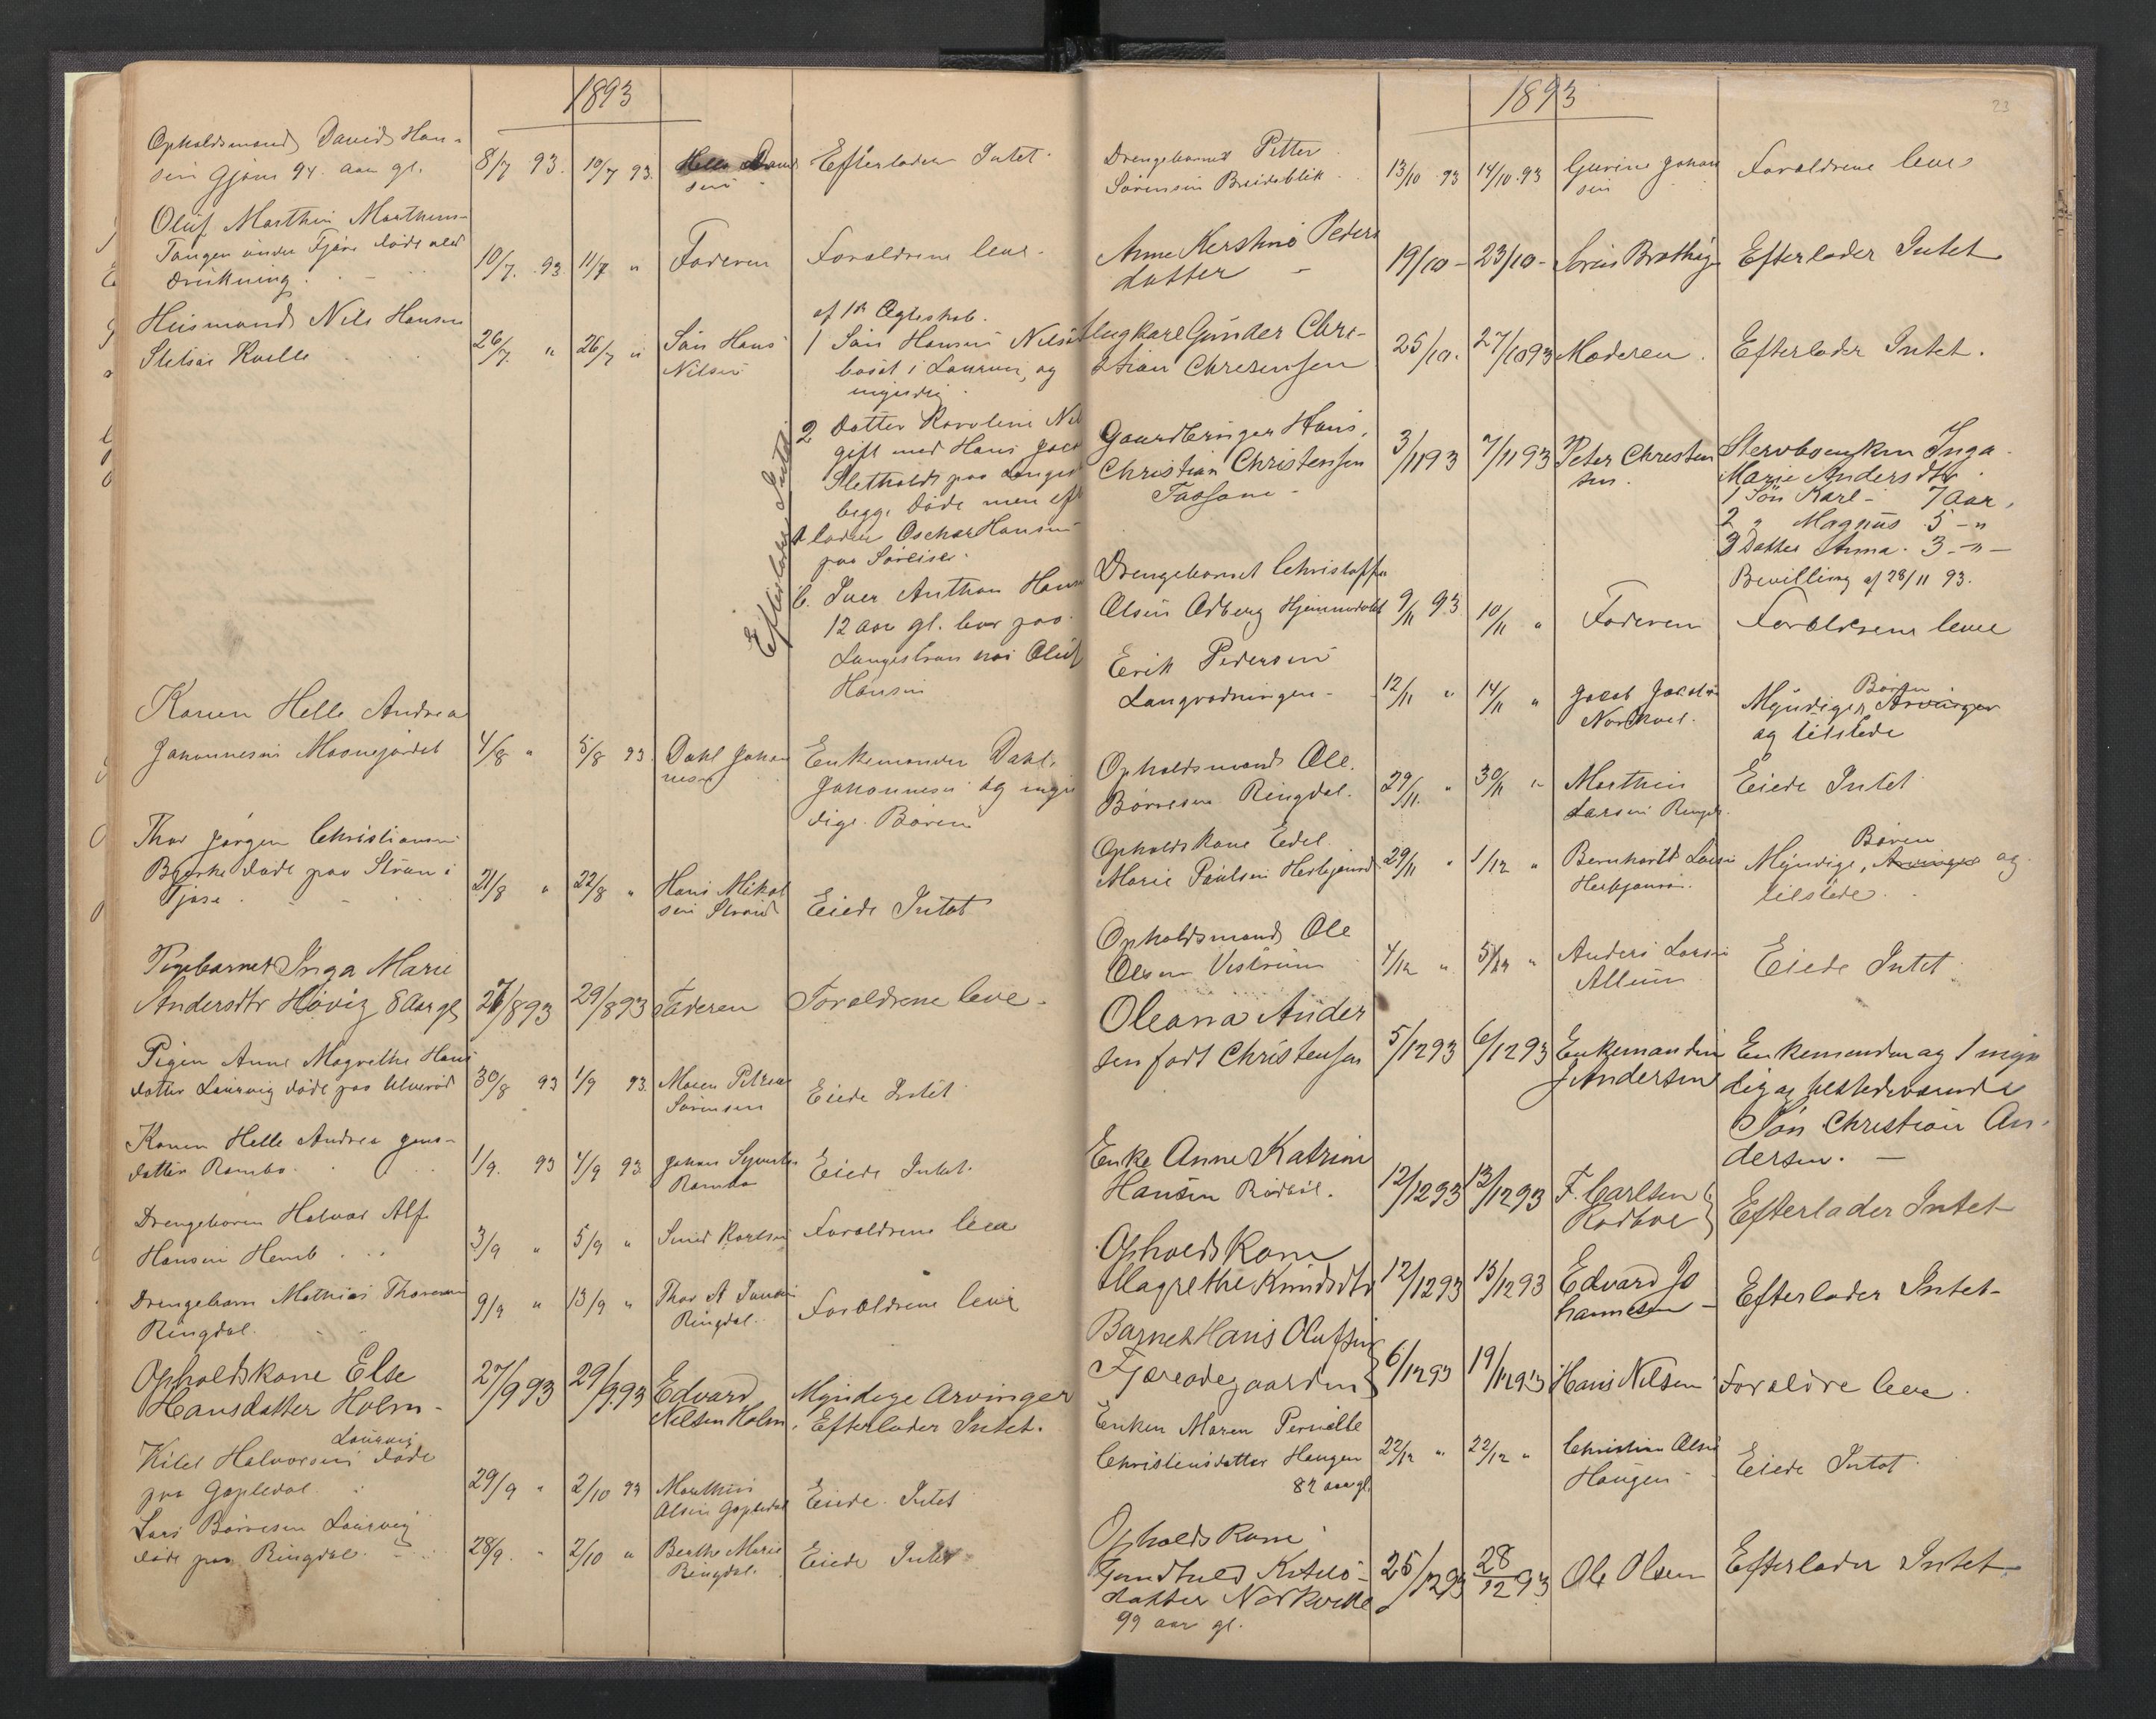 1893
Opholdsmand David Han-
sen Gjøm 94. aar gl. 8/7 93. 10/7 93. Helle David
sen Efterlader Intet.
Oluf Marthin Marthins-
Tangen under Fjære døde ved
drukning. 10/7. 93 11/7 " Faderen Foraldrene leve.
Husmand Nils Hansen
Kvelle 26/7 " 26/7 " Søn Hans
Nilsen
af 1ste Ægteskab.
1 Søn Hans Nilsen
bosat i Laurvig, og
myndig.
2 Datter Karoline Nil
gift med Hans Jaco
Sletholdt paa Langes
begge døde men eft
lader Oschar Hansen
paa
b. Iver Anthon Hans
12 aar gl. leve paa
Langestran hos Oluf
Hansen
Efterlader Intet
Konen Helle Andrea
Johannesen 4/8 " 5/8 93. Dahl Johan
nesen Enkemanden Dahl.
Johannesen og myn
dige Børen
Thor Jørgen Christiansen
Bjerke døde paa Strøm i
Tjøse. 21/8 " 22/8 " Hans Mikal
sen Strøm Eiede Intet
Pigebarnet Inga Marie
Andersdtr Høvig 8 Aar gl 27/893 29/893 Faderen Foraldrene leve -
Pigen Anne Magrethe Hans
datter Laurvig døde paa Ulverød 30/8 93 1/9 93. Maren Petrine
Sørensen Eiede Intet
Konen Helle Andrea Jens-
datter Rambo. 1/9. 93 4/9 93. Johan
Rambo Eiede Intet.
Drengebarn Halvor Alf.
Hansen Hemb 3/9 " 5/9 " Foraldrene leve
Drengebarn Mathias Thoresen
Ringdal. 9/9 " 13/9 " Thor A
Ringdal. Foraldrene leve
Opholdskone Else
Hansdatter Holm - 27/993 29/9.93 Edvard
Nilsen Holm Myndige Arvinger
Efterlader Intet.
Laurvig
Kitel Halvorsen døde
paa Gopledal. 29/9 " 2/10 93 Marthin
Olsen Gopledal Eiede Intet
Lars Børresen Laurvig
døde paa Ringdal. 28/9. " 2/10 " Berthe Marie
Ringdal. Eiede Intet
1893
23
Drengebarnet Petter
Sørensen Breidablik 13/10 93 14/10.93 Gurine Johan
sen Foraldrene leve
Anne Kerstine Peders
datter - 19/10 - 23/10 - Efterlader Intet
Ungkarl Gunder Chri-
stian Chresensen 25/10. 27/1093 Moderen. Efterlader Intet.
Gaardbruger Hans.
Christian Christensen
3/1193 7/1193 Peter Christen
sen. Stervboenken Inga
Marie Andersdtr
1 Søn Karl - 7 Aar.
2 " Magnus 5 - "
3 Datter Anna. 3 - " -
Bevilling af 28/11 93.
Drengebarnet Christoffer
Olsen Odberg Hjemmedahl 9/11 93 10/11 " Faderen Foraldrene leve
Erik Pedersen
Langvadningen - 12/11 " 14/11 " Jacob Jacobsen
Norkvel. Børen
Myndiger, Arvinger
og tilstede
Opholdsmand Ole.
Børresen Ringdal. 29/11. " 30/11 " Marthin
Larsen Ringdal. Eiede Intet
Opholdskone Edel.
Marie Paulsen 29/11 " 1/12 " Bernhardt Larsen
Børen
Myndige, Arvinger og
tilstede.
Opholdsmand Ole
Olsen Vestrum 4/12 " 5/12 " Anders Larsen
Allum Eiede Intet
Oleana Ander
sen født Christensen 5/1293 6/1293 Enkemanden
J Andersen Enkemanden og 1 myn
dig og tilstedeværende
Søn Christian An-
dersen. -
Enke Anne Katrine
Hansen Rødbøl. 12/1293 13/1293 F. Carlsen
Rødbøl Efterlader Intet
Opholdskone
Magrethe Knudsdtr 12/1293 15/1293 Edvard Jo
hannesen - Efterlader Intet -
Barnet Hans Olufsen
Fjæreødegaarden 6/1293 19/1293 Hans Nilsen Foraldre leve.
Enken Maren Pernille
Christensdatter Haugen
82 aar gl. 22/12 " 22/12 " Christian Olsen
Haugen - Eiede Intet
Opholdskone
Gundhild Ketels-
datter Norkvelle
99 aar gl. 25/1293 28/12 93 Ole Olsen Efterlader Intet